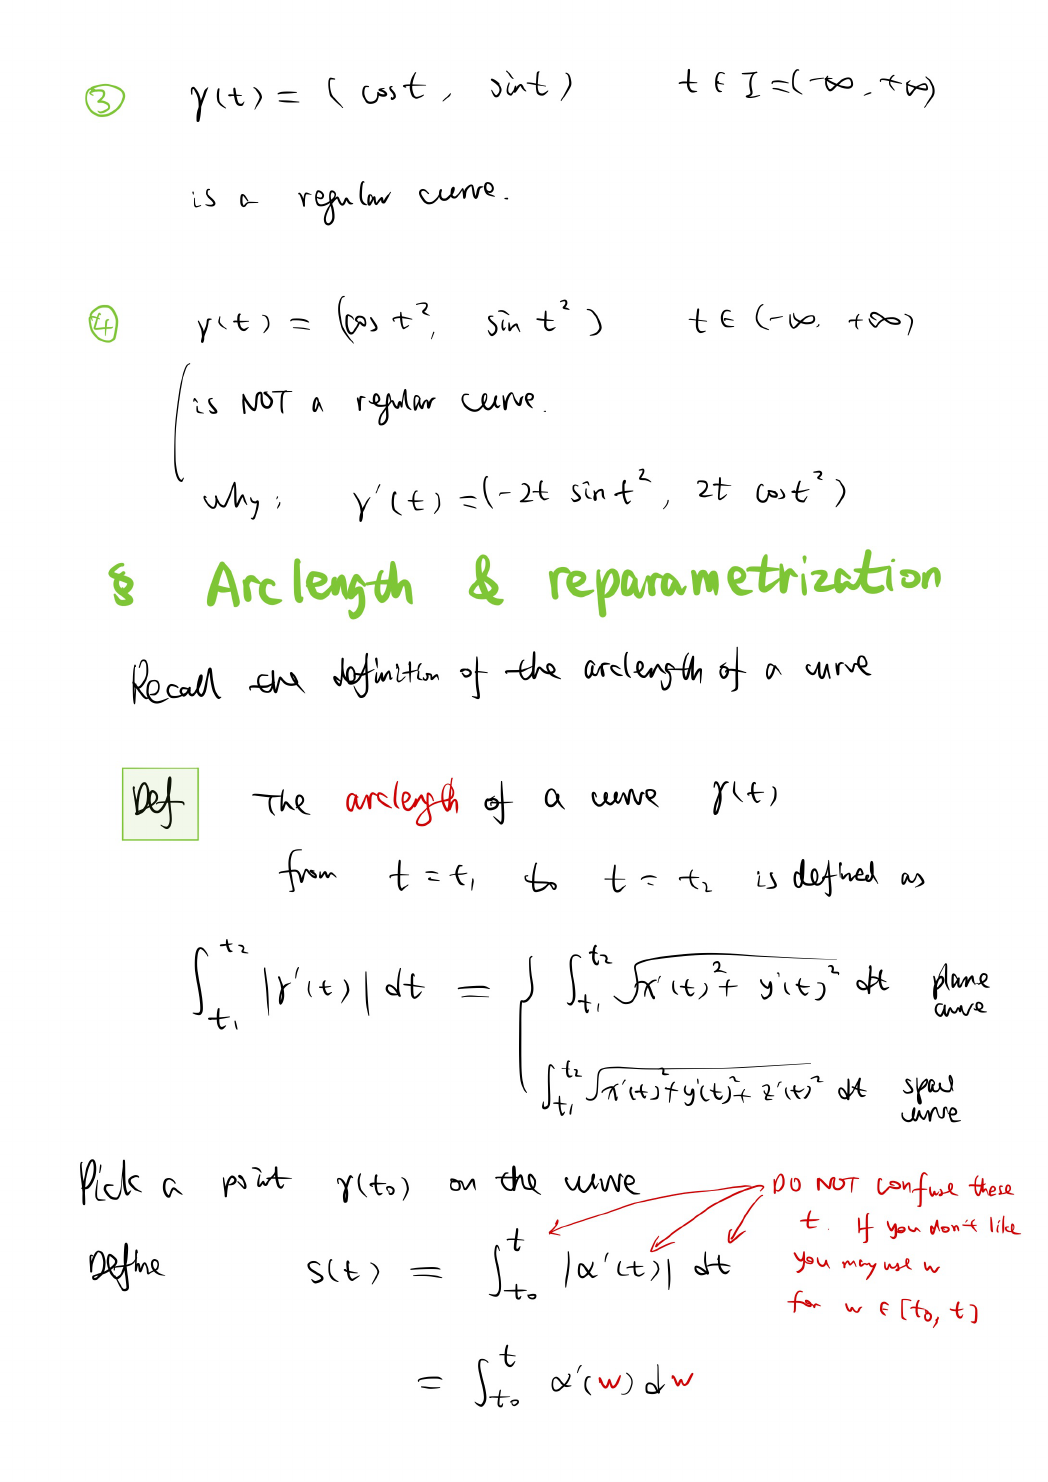 ③ γ(t) = (cost, sint) t ∈ I = (-∞, +∞)
is a regular curve.
④ γ(t) = (cos t², sin t²) t ∈ (-∞, +∞)
is NOT a regular curve.
why: γ'(t) = (-2t sin t², 2t cos t²)
§ Arclength & reparametrization
Recall the definition of the arclength of a curve
Def The arclength of a curve γ(t)
from t = t₁ to t = t₂ is defined as
∫_{t₁}^{t₂} |γ'(t)| dt = { ∫_{t₁}^{t₂} √(x'(t)² + y'(t)²) dt plane curve
∫_{t₁}^{t₂} √(x'(t)² + y'(t)² + z'(t)²) dt space curve
Pick a point γ(t₀) on the curve
Define S(t) = ∫_{t₀}^{t} |α'(t)| dt
DO NOT confuse these
t. If you don't like
you may use w
for w ∈ [t₀, t]
= ∫_{t₀}^{t} α'(w) dw